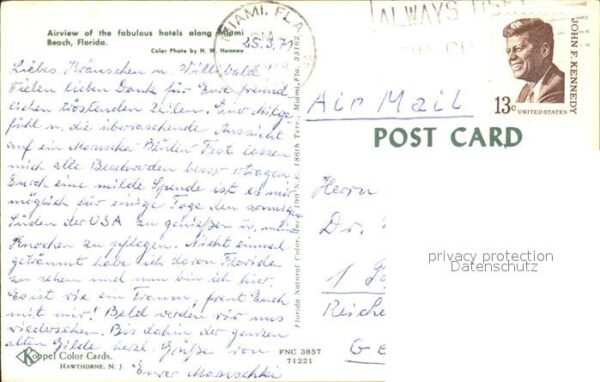 Airview of the fabulous hotels along Miami
Beach, Florida.
Color Photo by H. W. Hannau
25.3.71
MIAMI, FLA.
ALWAYS USE
JOHN F. KENNEDY
13c
UNITED STATES
Air Mail
POST CARD
Liebes Kränschen u. Willibald
Vielen lieben Dank für Eure freund
lichen tröstenden Zeilen. Euer Mitge
fühl u. die überraschende Aussicht
auf ein Manscher Bürlin Fest lassen
mich alle Beschwerden besser ertragen
Durch eine milde Spende ist es mir
möglich für einige Tage den sonnigen
Süden der USA zu genießen u. meine
Knochen zu pflegen. Nicht einmal
geträumt habe ich davon Florida
zu sehen und nun bin ich hier.
Es ist wie ein Traum, freut Euch
mit mir! Bald werden wir uns
wiedersehen. Bis dahin der ganzen
alten Gilde herzl. Grüße von
Eurer
Florida Natural Color, Inc. N.E. 186th Terr., Miami, Fla. 33162
Herrn
Dr.
1
Reiche
Ge
privacy protection
Datenschutz
Koppel Color Cards.
HAWTHORNE, N. J.
FNC 3857
71221